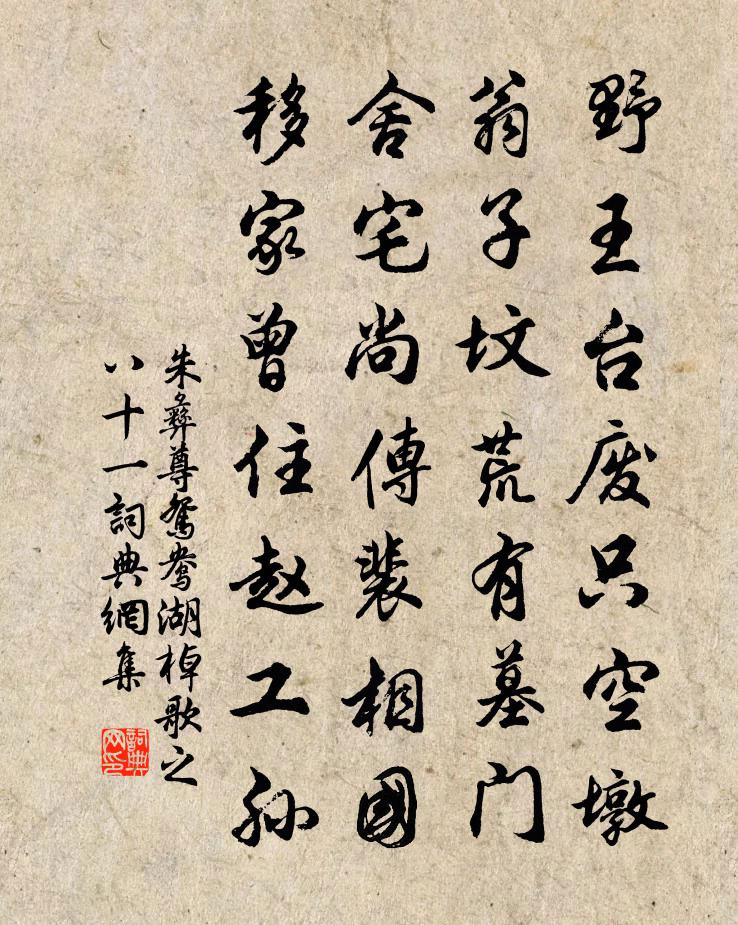 野王台废只空墩
翁子坟荒有墓门
舍宅尚傳裴相國
移家曾住赵工孙
朱彝尊鴛鸯湖棹歌之
八十一詞典網集
詞典网印